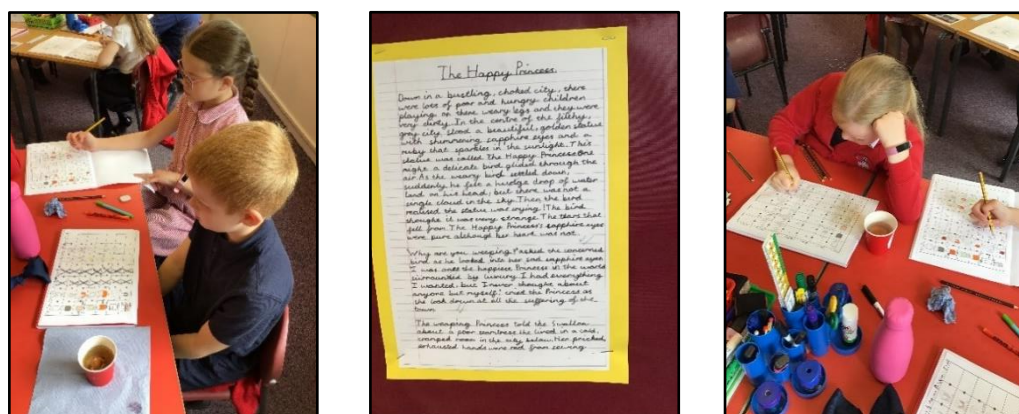 The Happy Princess.
Down in a bustling, choked city, there
were lots of poor and hungry children
playing on there weary legs and they were
very dirty. In the centre of the filthy,
gray city stood a beautiful, golden statue
with shimmering sapphire eyes and a
ruby that sparkles in the sunlight. This
statue was called The Happy Princess. One
night a delicate bird glided through the
air. As the weary bird settled down,
suddenly he felt a hudge drop of water
land on his head, but there was not a
single cloud in the sky. Then the bird
realised the statue was crying! The bird
thought it was very strange. The tears that
fell from The Happy Princess's sapphire eyes
were pure although her heart was not.
Why are you weeping?" asked the concerned
bird as he looked into her sad sapphire eyes
I was once the happiest Princess in the world
surrounded by luxury. I had everything
I wanted, but I never thought about
anyone but myself," cried the Princess as
she look down at all the suffering of the
town.
The weeping Princess told the Swallow
about a poor seamtress the lived in a cold,
cramped room in the city below. Her pricked,
exhausted hands were red from sewing